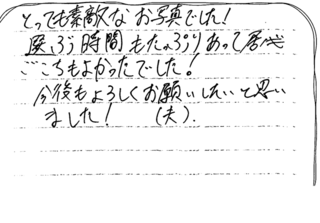 とっても素敵なお写真でした!
遊ぶ時間もたっぷりあって居心
ごこちもよかったでした!
今後もよろしくお願いしたいと思い
ました! (夫).